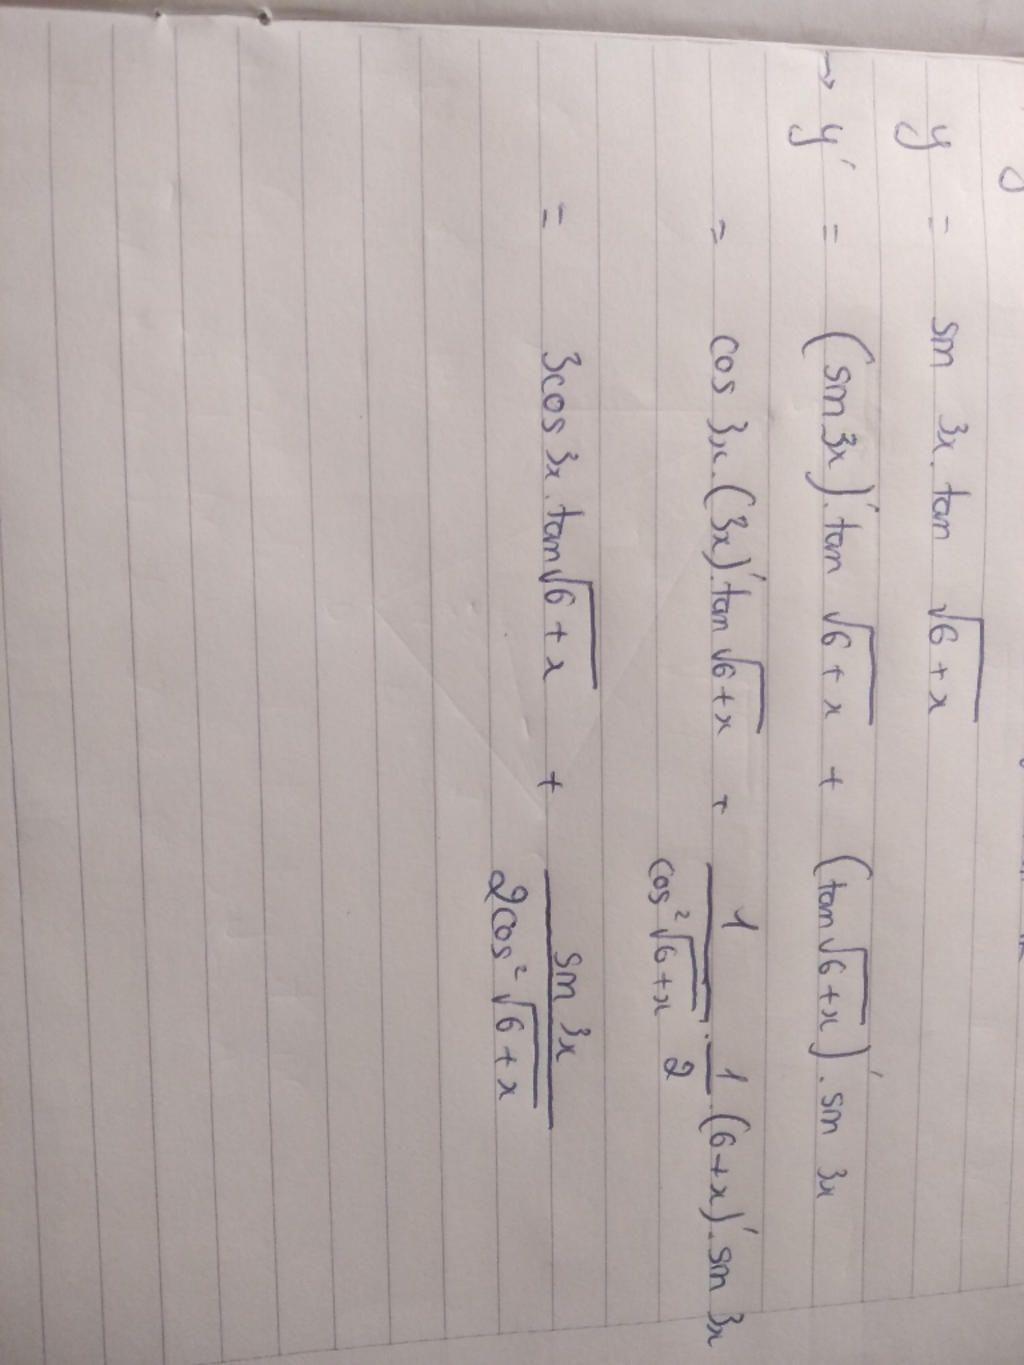 y = sin 3x . tan √(6+x)
→ y' = (sin 3x)' . tan √(6+x) + (tan √(6+x))' . sin 3x
= cos 3x . (3x)' . tan √(6+x) + 1/(cos² √(6+x)) . 1/2 (6+x)' . sin 3x
= 3cos 3x . tan √(6+x) + sin 3x/(2cos² √(6+x))